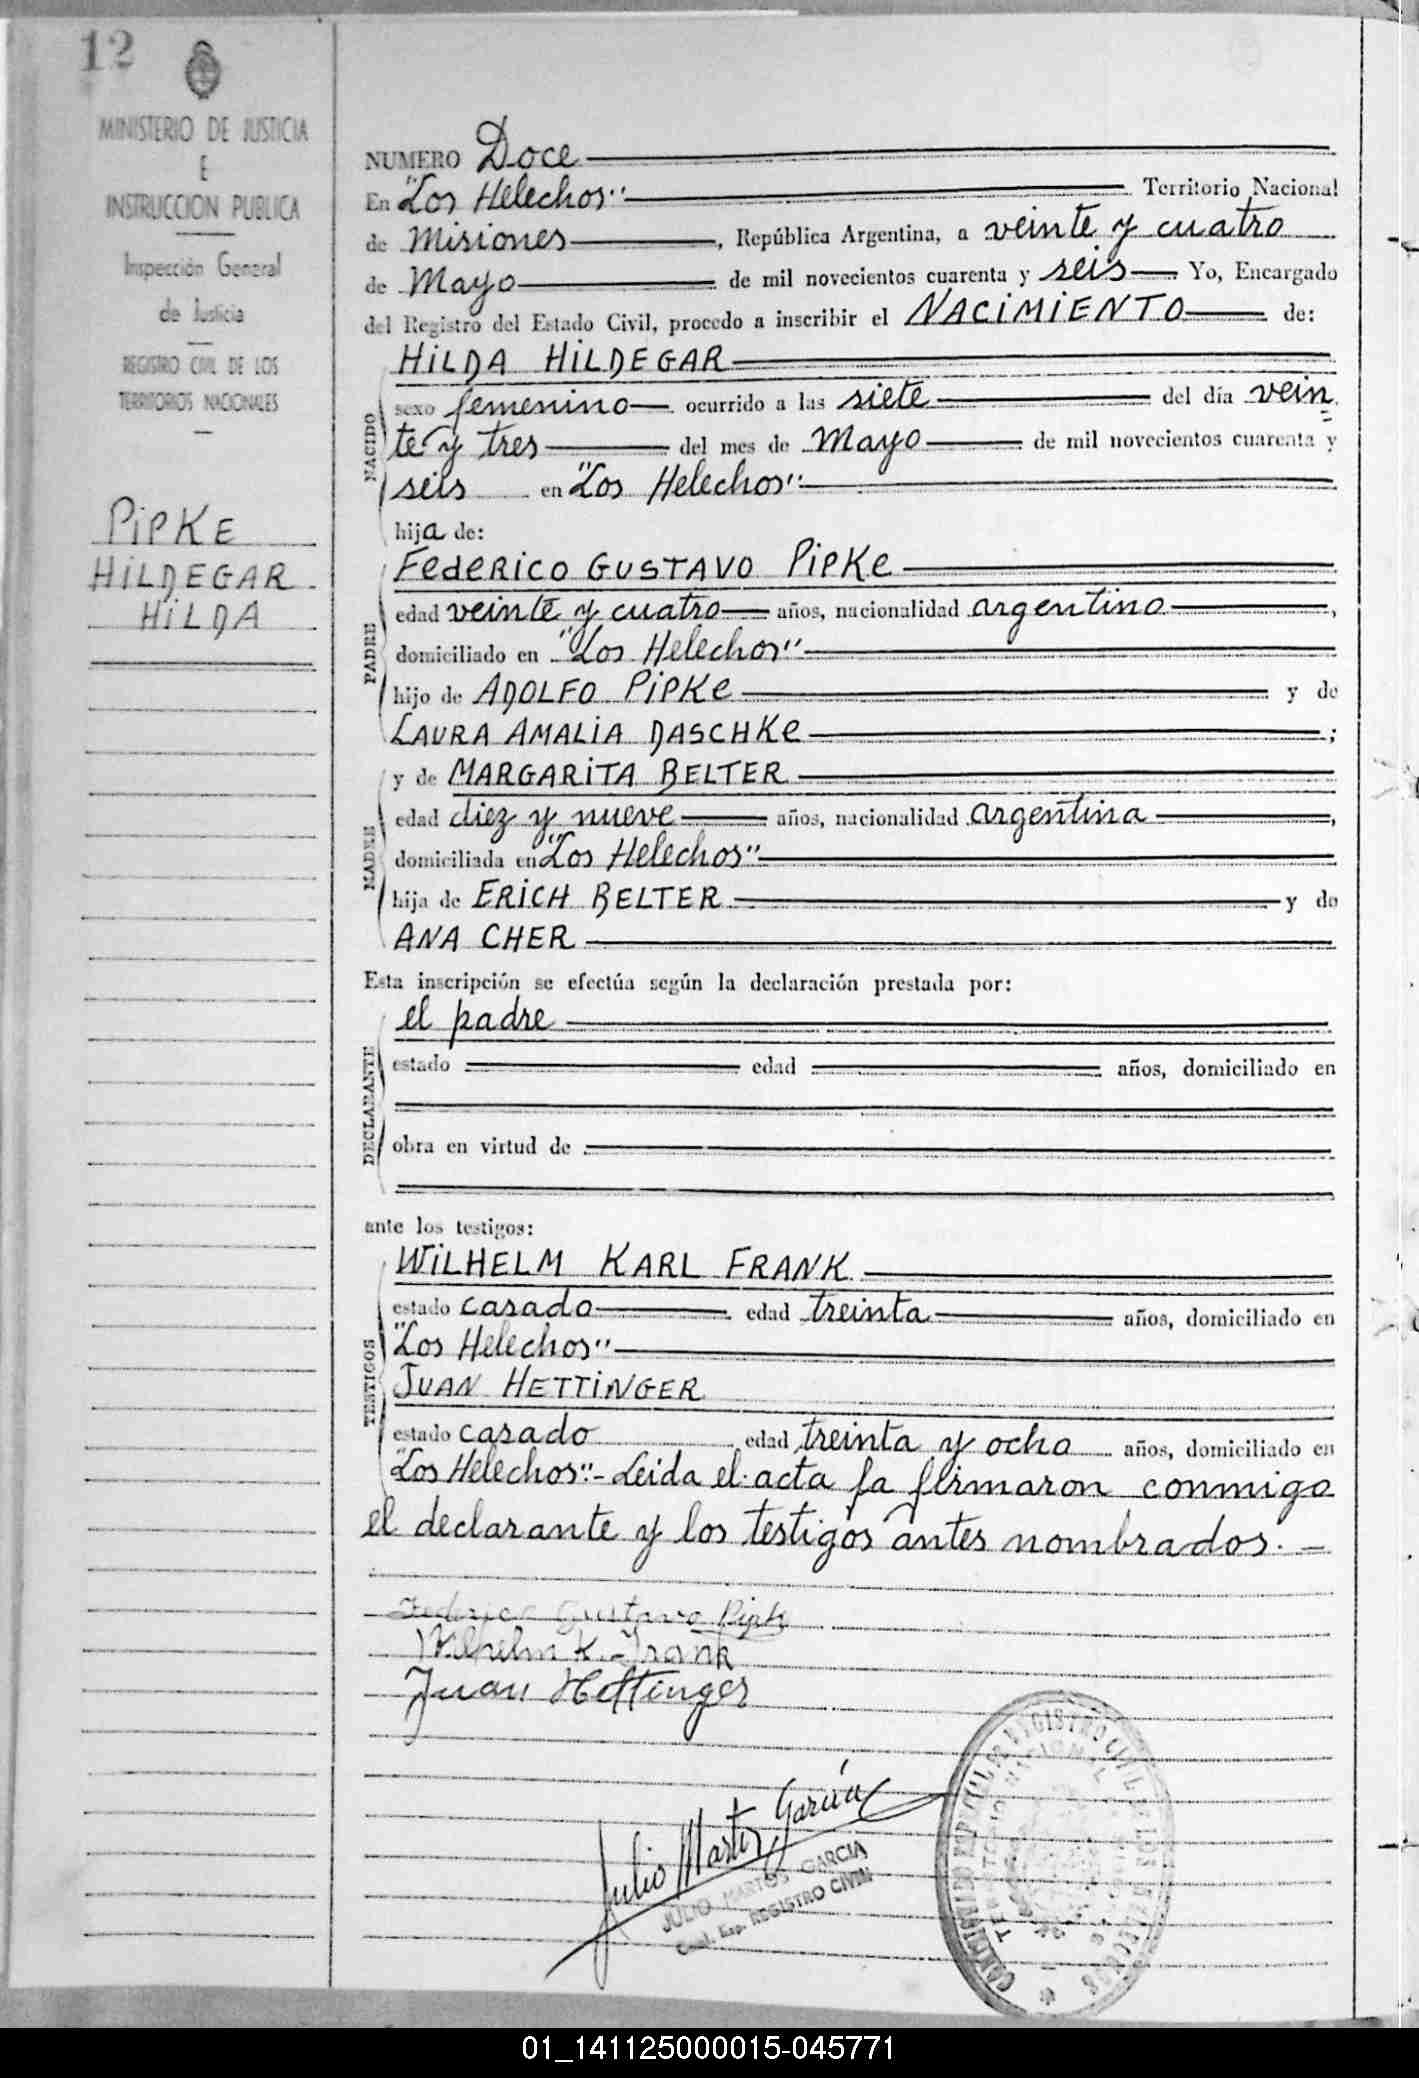 12
MINISTERIO DE JUSTICIA
E
INSTRUCCION PUBLICA
Inspección General
de Justicia
REGISTRO CIVIL DE LOS
TERRITORIOS NACIONALES
PIPKE
HILDEGAR
HILDA
NUMERO Doce
En "Los Helechos" Territorio Nacional
de Misiones, República Argentina, a veinte y cuatro
de Mayo de mil novecientos cuarenta y seis Yo, Encargado
del Registro del Estado Civil, procedo a inscribir el NACIMIENTO de:
NACIDO
HILDA HILDEGAR
sexo femenino ocurrido a las siete del día vein
te y tres del mes de Mayo de mil novecientos cuarenta y
seis en "Los Helechos"
hija de:
PADRE
FEDERICO GUSTAVO PIPKE
edad veinte y cuatro años, nacionalidad argentino,
domiciliado en "Los Helechos"
hijo de ADOLFO PIPKE y de
LAURA AMALIA DASCHKE;
MADRE
y de MARGARITA BELTER
edad diez y nueve años, nacionalidad argentina,
domiciliada en "Los Helechos"
hija de ERICH BELTER y de
ANA CHER
Esta inscripción se efectúa según la declaración prestada por:
DECLARANTE
el padre
estado edad años, domiciliado en
obra en virtud de
ante los testigos:
TESTIGOS
WILHELM KARL FRANK
estado casado edad treinta años, domiciliado en
"Los Helechos"
JUAN HETTINGER
estado casado edad treinta y ocho años, domiciliado en
"Los Helechos".- Leida el acta la firmaron conmigo
el declarante y los testigos antes nombrados.-
Federico Gustavo Pipke
Wilhelm K. Frank
Juan Hettinger
Julio Martos García
JULIO MARTOS GARCIA
REGISTRO CIVIL
REGISTRO CIVIL
01_141125000015-045771